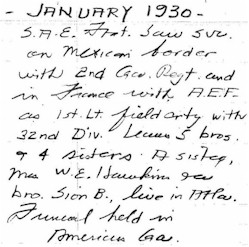 - JANUARY 1930 -
S.A.E. Frat. Saw svc.
on Mexican border
with 2nd Ga. Regt. and
in France with A.E.F.
as 1st. Lt. field arty with
32nd Div. Leaves 5 bros.
& 4 sisters. A sister,
Mrs W.E. Hawkins &
bro. Sion B., live in Atla.
Funeral held in
American Ga.